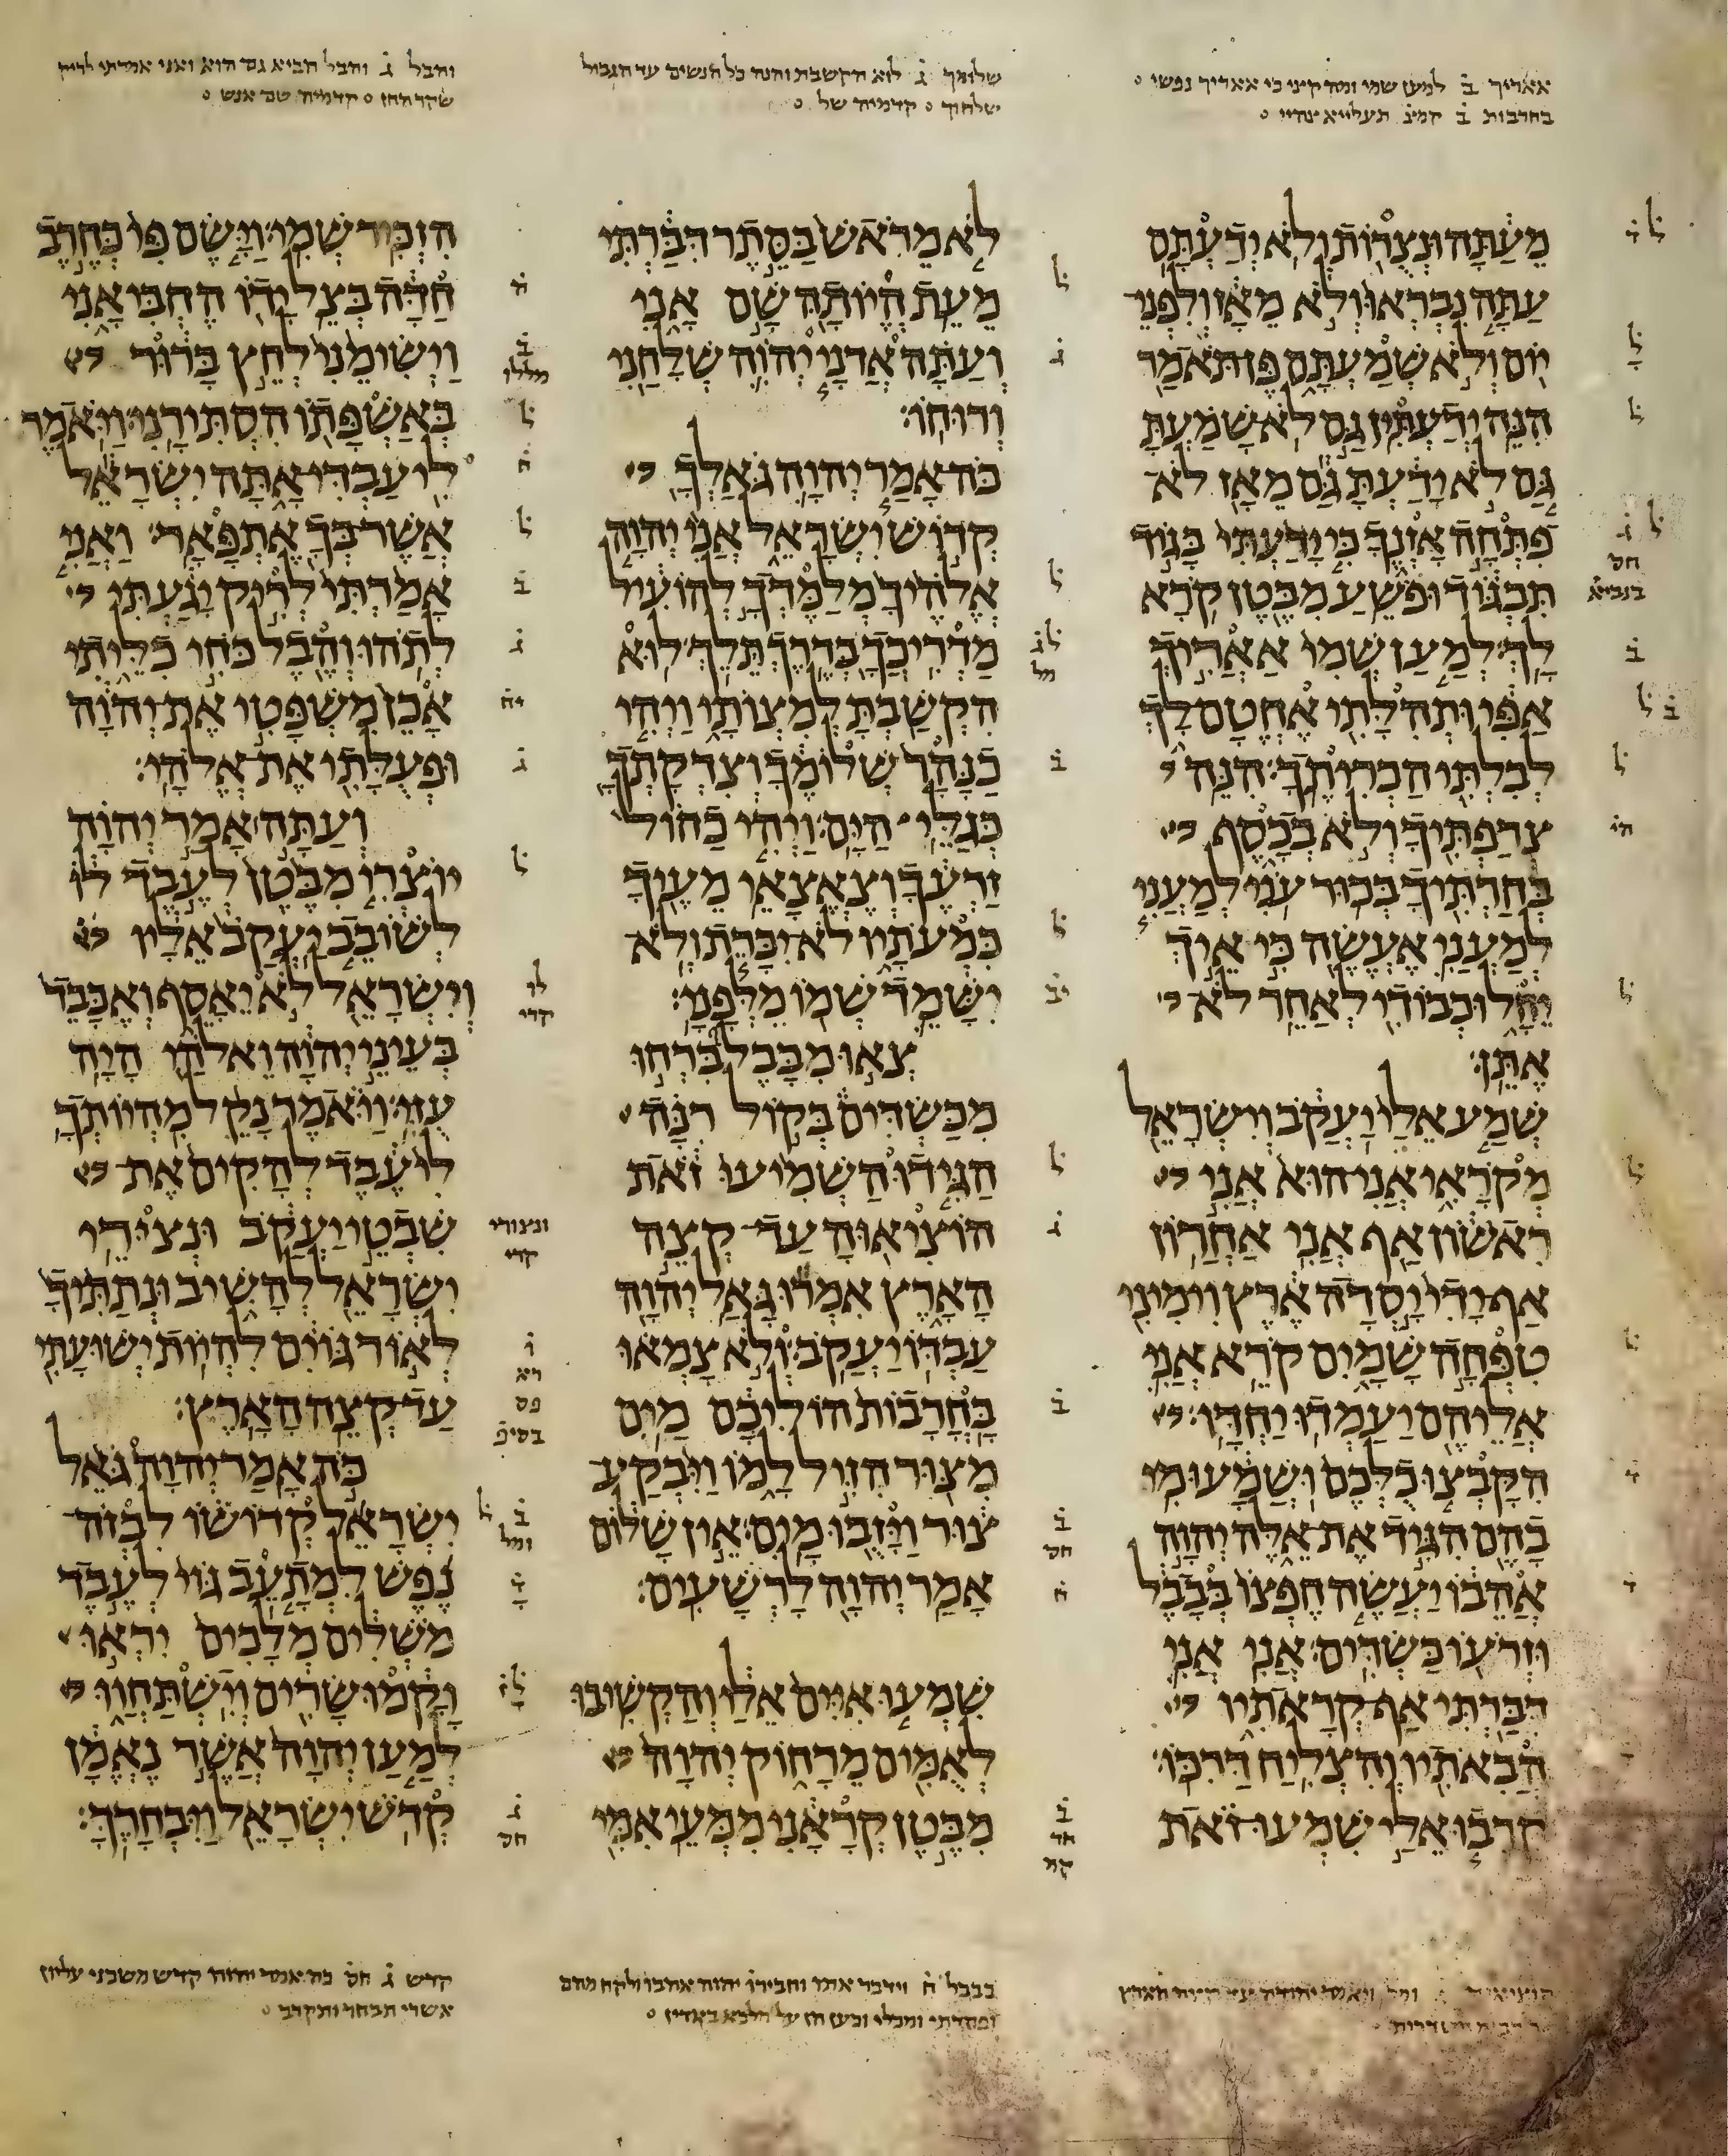 אאריך ב למען שמי ומה קיצי כי אאריך נפשי
בחרבות ב קמצ
שלומך ג לוא הקשבת והנה כל הנשים עד הגבול
שלחוך קדמיה של
והבל ג והבל הביא גם הוא ואני אמרתי לריק
שקר החן קדמיה שם אנש
מֵעַתָּה וּנְצֻרוֹת וְלֹא יְדַעְתָּם
עַתָּה נִבְרְאוּ וְלֹא מֵאָז וְלִפְנֵי
יוֹם וְלֹא שְׁמַעְתָּם פֶּן תֹּאמַר
הִנֵּה יְדַעְתִּין גַּם לֹא שָׁמַעְתָּ
גַּם לֹא יָדַעְתָּ גַּם מֵאָז לֹא
פִתְּחָה אָזְנֶךָ כִּי יָדַעְתִּי בָּגוֹד
תִּבְגּוֹד וּפֹשֵׁעַ מִבֶּטֶן קֹרָא
לָךְ׃ לְמַעַן שְׁמִי אַאֲרִיךְ
אַפִּי וּתְהִלָּתִי אֶחֱטָם לָךְ
לְבִלְתִּי הַכְרִיתֶךָ׃ הִנֵּה
צְרַפְתִּיךָ וְלֹא בְכָסֶף
בְּחַרְתִּיךָ בְּכוּר עֹנִי׃ לְמַעֲנִי
לְמַעֲנִי אֶעֱשֶׂה כִּי אֵיךְ
יֵחָל וּכְבוֹדִי לְאַחֵר לֹא
אֶתֵּן׃
שְׁמַע אֵלַי יַעֲקֹב וְיִשְׂרָאֵל
מְקֹרָאִי אֲנִי הוּא אֲנִי
רִאשׁוֹן אַף אֲנִי אַחֲרוֹן
אַף יָדִי יָסְדָה אֶרֶץ וִימִינִי
טִפְּחָה שָׁמָיִם קֹרֵא אֲנִי
אֲלֵיהֶם יַעַמְדוּ יַחְדָּו׃
הִקָּבְצוּ כֻלְּכֶם וּשְׁמָעוּ מִי
בָהֶם הִגִּיד אֶת אֵלֶּה יְהוָה
אֲהֵבוֹ יַעֲשֶׂה חֶפְצוֹ בְּבָבֶל
וּזְרֹעוֹ כַּשְׂדִּים׃ אֲנִי אֲנִי
דִּבַּרְתִּי אַף קְרָאתִיו
הֲבִאֹתִיו וְהִצְלִיחַ דַּרְכּוֹ׃
קִרְבוּ אֵלַי שִׁמְעוּ זֹאת
לֹא מֵרֹאשׁ בַּסֵּתֶר דִּבַּרְתִּי
מֵעֵת הֱיוֹתָהּ שָׁם אָנִי
וְעַתָּה אֲדֹנָי יְהוִה שְׁלָחַנִי
וְרוּחוֹ׃
כֹּה אָמַר יְהוָה גֹּאַלְךָ
קְדוֹשׁ יִשְׂרָאֵל אֲנִי יְהוָה
אֱלֹהֶיךָ מְלַמֶּדְךָ לְהוֹעִיל
מַדְרִיכֲךָ בְּדֶרֶךְ תֵּלֵךְ׃ לוּא
הִקְשַׁבְתָּ לְמִצְוֹתָי וַיְהִי
כַנָּהָר שְׁלוֹמֶךָ וְצִדְקָתְךָ
כְּגַלֵּי הַיָּם׃ וַיְהִי כַחוֹל
זַרְעֶךָ וְצֶאֱצָאֵי מֵעֶיךָ
כִּמְעֹתָיו לֹא יִכָּרֵת וְלֹא
יִשָּׁמֵד שְׁמוֹ מִלְּפָנָי׃
צְאוּ מִבָּבֶל בִּרְחוּ
מִכַּשְׂדִּים בְּקוֹל רִנָּה
הַגִּידוּ הַשְׁמִיעוּ זֹאת
הוֹצִיאוּהָ עַד קְצֵה
הָאָרֶץ אִמְרוּ גָּאַל יְהוָה
עַבְדּוֹ יַעֲקֹב׃ וְלֹא צָמְאוּ
בָּחֳרָבוֹת הוֹלִיכָם מַיִם
מִצּוּר הִזִּיל לָמוֹ וַיִּבְקַע
צוּר וַיָּזֻבוּ מָיִם׃ אֵין שָׁלוֹם
אָמַר יְהוָה לָרְשָׁעִים׃
שִׁמְעוּ אִיִּים אֵלַי וְהַקְשִׁיבוּ
לְאֻמִּים מֵרָחוֹק יְהוָה
מִבֶּטֶן קְרָאָנִי מִמְּעֵי אִמִּי
הִזְכִּיר שְׁמִי׃ וַיָּשֶׂם פִּי כְּחֶרֶב
חַדָּה בְּצֵל יָדוֹ הֶחְבִּיאָנִי
וַיְשִׂימֵנִי לְחֵץ בָּרוּר
בְּאַשְׁפָּתוֹ הִסְתִּירָנִי׃ וַיֹּאמֶר
לִי עַבְדִּי אָתָּה יִשְׂרָאֵל
אֲשֶׁר בְּךָ אֶתְפָּאָר׃ וַאֲנִי
אָמַרְתִּי לְרִיק יָגַעְתִּי
לְתֹהוּ וְהֶבֶל כֹּחִי כִלֵּיתִי
אָכֵן מִשְׁפָּטִי אֶת יְהוָה
וּפְעֻלָּתִי אֶת אֱלֹהָי׃
וְעַתָּה אָמַר יְהוָה
יוֹצְרִי מִבֶּטֶן לְעֶבֶד לוֹ
לְשׁוֹבֵב יַעֲקֹב אֵלָיו
וְיִשְׂרָאֵל לֹא יֵאָסֵף וְאֶכָּבֵד
בְּעֵינֵי יְהוָה וֵאלֹהַי הָיָה
עֻזִּי׃ וַיֹּאמֶר נָקֵל מִהְיוֹתְךָ
לִי עֶבֶד לְהָקִים אֶת
שִׁבְטֵי יַעֲקֹב וּנְצִירֵי
יִשְׂרָאֵל לְהָשִׁיב וּנְתַתִּיךָ
לְאוֹר גּוֹיִם לִהְיוֹת יְשׁוּעָתִי
עַד קְצֵה הָאָרֶץ׃
כֹּה אָמַר יְהוָה גֹּאֵל
יִשְׂרָאֵל קְדוֹשׁוֹ לִבְזֹה
נֶפֶשׁ לִמְתָעֵב גּוֹי לְעֶבֶד
מֹשְׁלִים מְלָכִים יִרְאוּ
וָקָמוּ שָׂרִים וְיִשְׁתַּחֲוּוּ
לְמַעַן יְהוָה אֲשֶׁר נֶאֱמָן
קְדֹשׁ יִשְׂרָאֵל וַיִּבְחָרֶךָּ׃
קדש ג חס כה אמר יהוה קדש משכני עליון
אשרי תבחר ותקרב